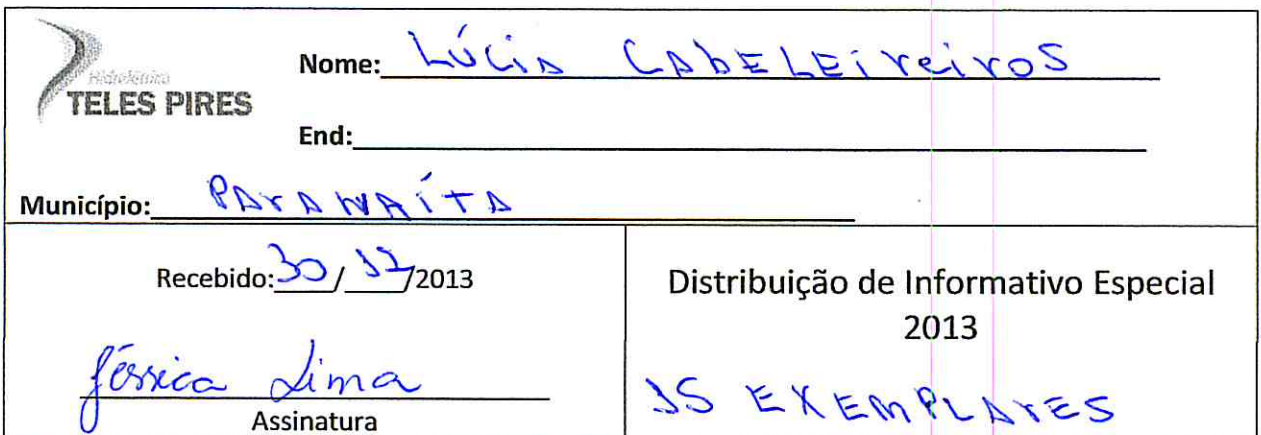 Hidrelétrica
TELES PIRES
Nome: LÚCIA CABELEIreiroS
End:
Município: PArANAÍTA
Recebido: 30/12/2013
Jéssica Lima
Assinatura
Distribuição de Informativo Especial
2013
15 EXEMPLArES